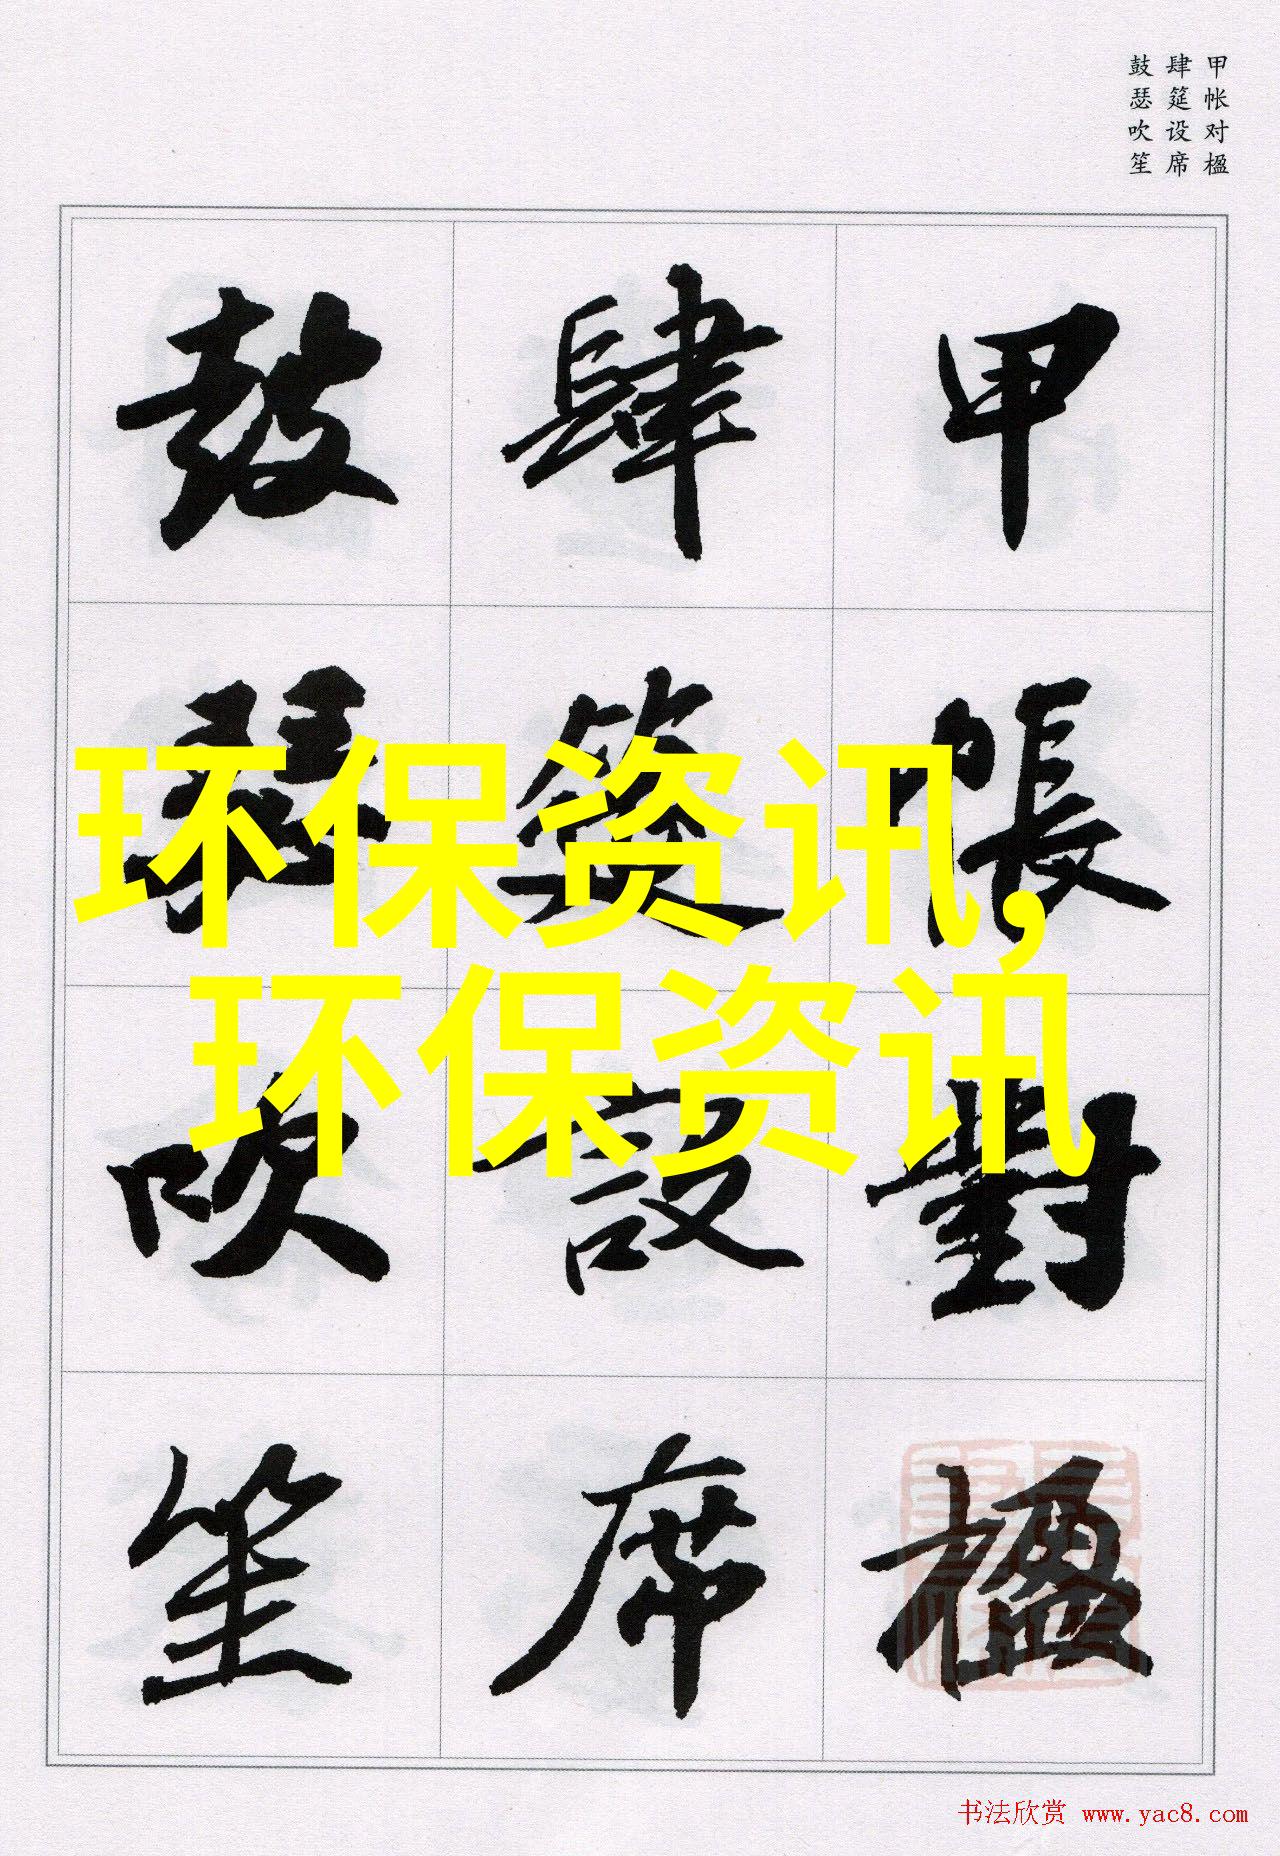 甲帐对楹
肆筵设席
鼓瑟吹笙
甲帳對楹
肆筵設席
鼓瑟吹笙
环保资讯,
环保资讯
书法欣赏 www.yac8.com